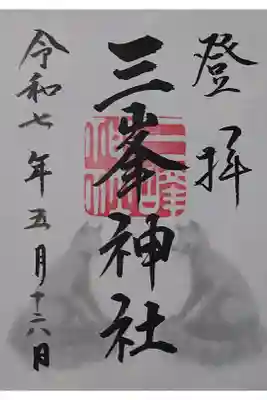 登拝
三峯神社
令和七年五月十六日